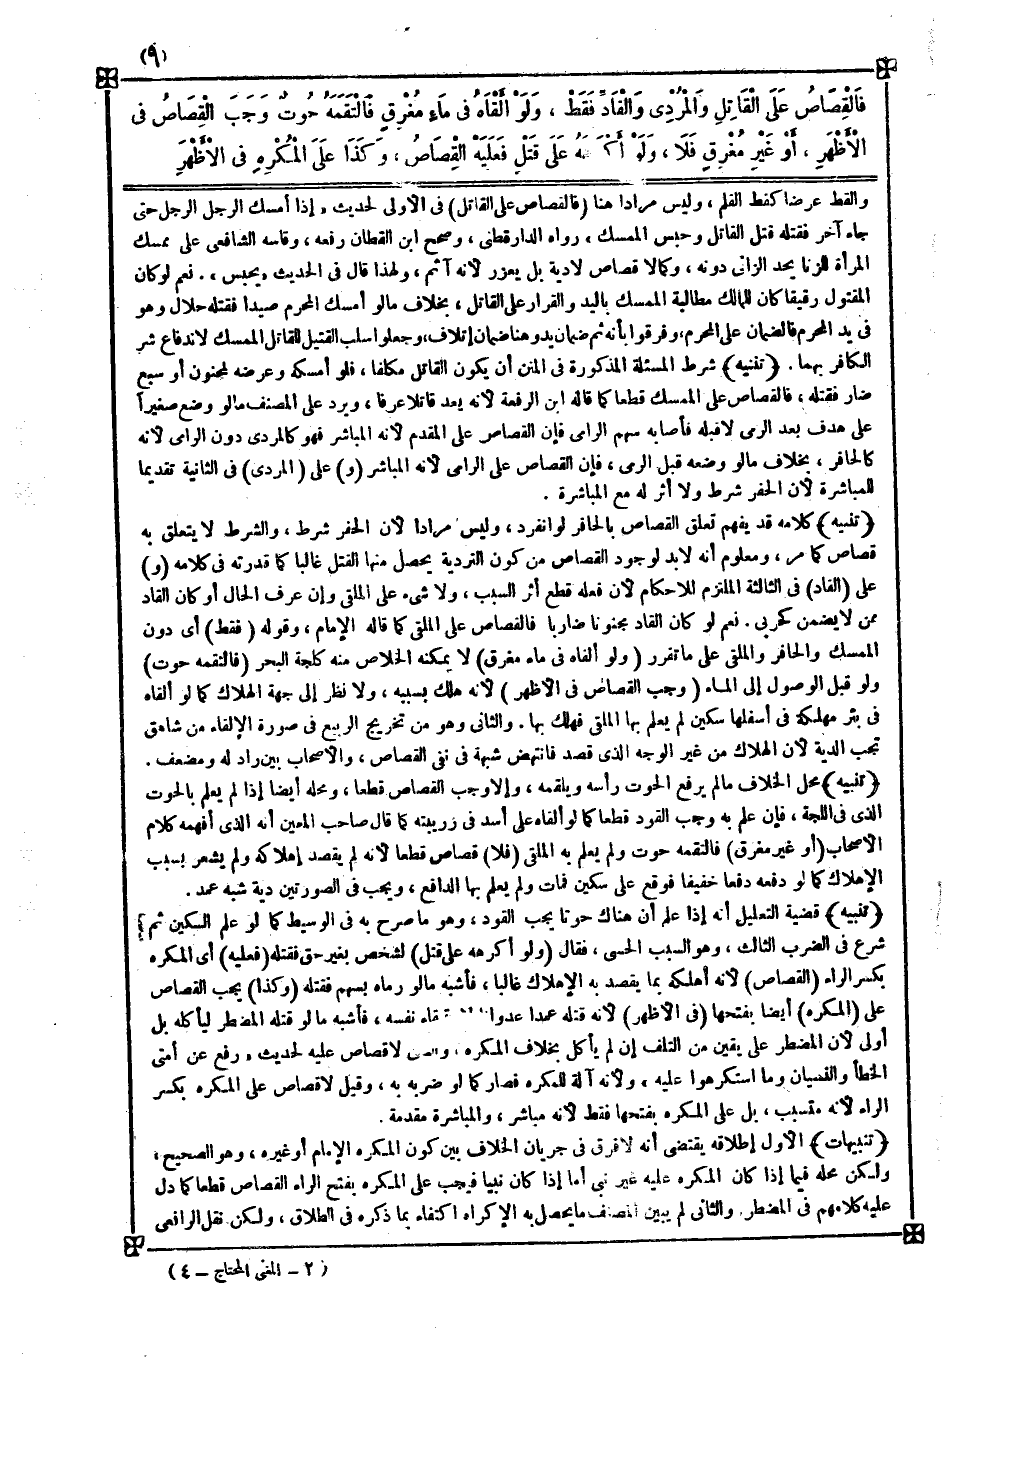 (٩)
فَالْقِصَاصُ عَلَى الْقَاتِلِ وَالْمُرْدِى وَالْقَادِّ فَقَطْ ، وَلَوْ أَلْقَاهُ فِى مَاءٍ مُغْرِقٍ فَالْتَقَمَهُ حُوتٌ وَجَبَ الْقِصَاصُ فِى
الْأَظْهَرِ ، أَوْ غَيْرِ مُغْرِقٍ فَلَا ، وَلَوْ عَلَى قَتْلٍ فَعَلَيْهِ الْقِصَاصُ ، وَكَذَا عَلَى الْمُكْرَهِ فِى الْأَظْهَرِ
والقط عرضا كقط القلم ، وليس مرادا هنا (فالقصاص على القاتل) فى الأولى لحديث « إذا أمسك الرجل الرجل حتى
جاء آخر فقتله قتل القاتل وحبس الممسك ، رواه الدارقطنى ، وصحح ابن القطان رفعه ، وقاسه الشافعى على ممسك
المرأة للزنا يحد الزانى دونه ، وكما لا قصاص لا دية بل يعزر لأنه آثم ، ولهذا قال فى الحديث « يحبس » . نعم لو كان
المقتول رقيقا كان للمالك مطالبة الممسك باليد والقرار على القاتل ، بخلاف مالو أمسك المحرم صيدا فقتله حلال وهو
فى يد المحرم فالضمان على المحرم ، وفرقوا بأنه ثم ضمان يد وهنا ضمان إتلاف ، وجعلوا سلب القتيل للقاتل الممسك لاندفاع شر
الكافر بهما . ﴿تنبيه﴾ شرط المسئلة المذكورة فى المتن أن يكون القاتل مكلفا ، فلو أمسكه وعرضه لمجنون أو سبع
ضار فقتله ، فالقصاص على الممسك قطعا كما قاله ابن الرفعة لأنه يعد قاتلا عرفا ، ويرد على المصنف مالو وضع صغيرا
على هدف بعد الرمى لا قبله فأصابه سهم الرامى فإن القصاص على المقدم لأنه المباشر فهو كالمردى دون الرامى لأنه
كالحافر ، بخلاف مالو وضعه قبل الرمى ، فإن القصاص على الرامى لأنه المباشر (و) على (المردى) فى الثانية تقديما
للمباشرة لأن الحفر شرط ولا أثر له مع المباشرة .
﴿تنبيه﴾ كلامه قد يفهم تعلق القصاص بالحافر لو انفرد ، وليس مرادا لأن الحفر شرط ، والشرط لا يتعلق به
قصاص كما مر ، ومعلوم أنه لابد لوجود القصاص من كون التردية يحصل منها القتل غالبا كما قدرته فى كلامه (و)
على (القاد) فى الثالثة الملتزم للأحكام لأن فعله قطع أثر السبب ، ولا شىء على الملقى وإن عرف الحال أو كان القاد
ممن لا يضمن كحربى . نعم لو كان القاد مجنونا ضاريا فالقصاص على الملقى كما قاله الإمام ، وقوله ( فقط) أى دون
الممسك والحافر والملقى على ماتقرر ( ولو ألقاه فى ماء مغرق) لا يمكنه الخلاص منه كلجة البحر (فالتقمه حوت)
ولو قبل الوصول إلى الماء ( وجب القصاص فى الأظهر ) لأنه هلك بسببه ، ولا نظر إلى جهة الهلاك كما لو ألقاه
فى بئر مهلكة فى أسفلها سكين لم يعلم بها الملقى فهلك بها . والثانى وهو من تخريج الربيع فى صورة الإلقاء من شاهق
تجب الدية لأن الهلاك من غير الوجه الذى قصد فانتهض شبهة فى نفى القصاص ، والأصحاب بين راد له ومضعف .
﴿تنبيه﴾ محل الخلاف مالم يرفع الحوت رأسه ويلقمه ، وإلا وجب القصاص قطعا ، ومحله أيضا إذا لم يعلم بالحوت
الذى فى اللجة ، فإن علم به وجب القود قطعا كما لو ألقاه على أسد فى زريبته كما قال صاحب المعين أنه الذى أفهمه كلام
الأصحاب (أو غير مغرق) فالتقمه حوت ولم يعلم به الملقى (فلا) قصاص قطعا لأنه لم يقصد إهلاكه ولم يشعر بسبب
الإهلاك كما لو دفعه دفعا خفيفا فوقع على سكين فمات ولم يعلم بها الدافع ، ويجب فى الصورتين دية شبه عمد .
﴿تنبيه﴾ قضية التعليل أنه إذا علم أن هناك حوتا يجب القود ، وهو ما صرح به فى الوسيط كما لو علم السكين ثم
شرع فى الضرب الثالث ، وهو السبب الحسى ، فقال (ولو أكرهه على قتل) لشخص بغير حق فقتله (فعليه) أى المكره
بكسر الراء (القصاص) لأنه أهلكه بما يقصد به الإهلاك غالبا ، فأشبه مالو رماه بسهم فقتله (وكذا) يجب القصاص
على (المكره) أيضا بفتحها (فى الأظهر) لأنه قتله عمدا عدوانا نفسه ، فأشبه ما لو قتله المضطر ليأكله بل
أولى لأن المضطر على يقين من التلف إن لم يأكل بخلاف المكره ، لا قصاص عليه لحديث « رفع عن أمتى
الخطأ والنسيان وما استكرهوا عليه ، ولأنه آلة للمكره فصار كما لو ضربه به ، وقيل لا قصاص على المكره بكسر
الراء لأنه متسبب ، بل على المكره بفتحها فقط لأنه مباشر ، والمباشرة مقدمة .
﴿تنبيهات﴾ الأول إطلاقه يقتضى أنه لا فرق فى جريان الخلاف بين كون المكره الإمام أو غيره ، وهو الصحيح ،
ولكن محله فيما إذا كان المكره عليه غير نبى أما إذا كان نبيا فيجب على المكره بفتح الراء القصاص قطعا كما دل
عليه كلامهم فى المضطر. والثانى لم يبين المصنف مايحصل به الإكراه اكتفاء بما ذكره فى الطلاق ، ولكن نقل الرافعى
( ٢ – المغنى المحتاج – ٤ )